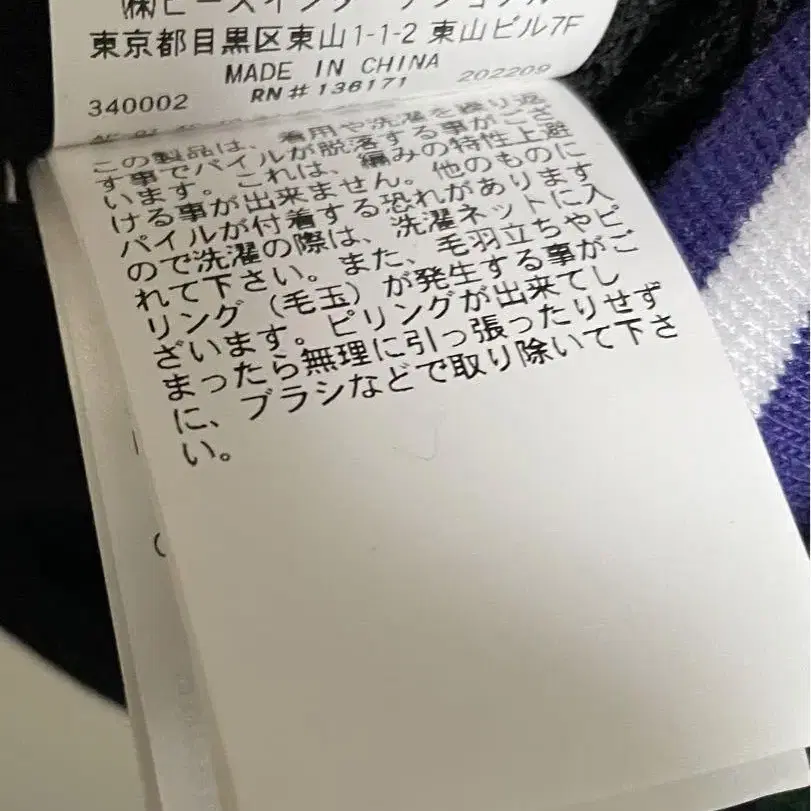 (株)ビーズインターナショナル
東京都目黒区東山1-1-2 東山ビル7F
MADE IN CHINA
340002 RN#136171 202209
この製品は、着用や洗濯を繰り返
す事でパイルが脱落する事がござ
います。これは、編みの特性上避
ける事が出来ません。他のものに
パイルが付着する恐れがあります
ので洗濯の際は、洗濯ネットに入
れて下さい。また、毛羽立ちやピ
リング（毛玉）が発生する事がご
ざいます。ピリングが出来てし
まったら無理に引っ張ったりせず
に、ブラシなどで取り除いて下さ
い。